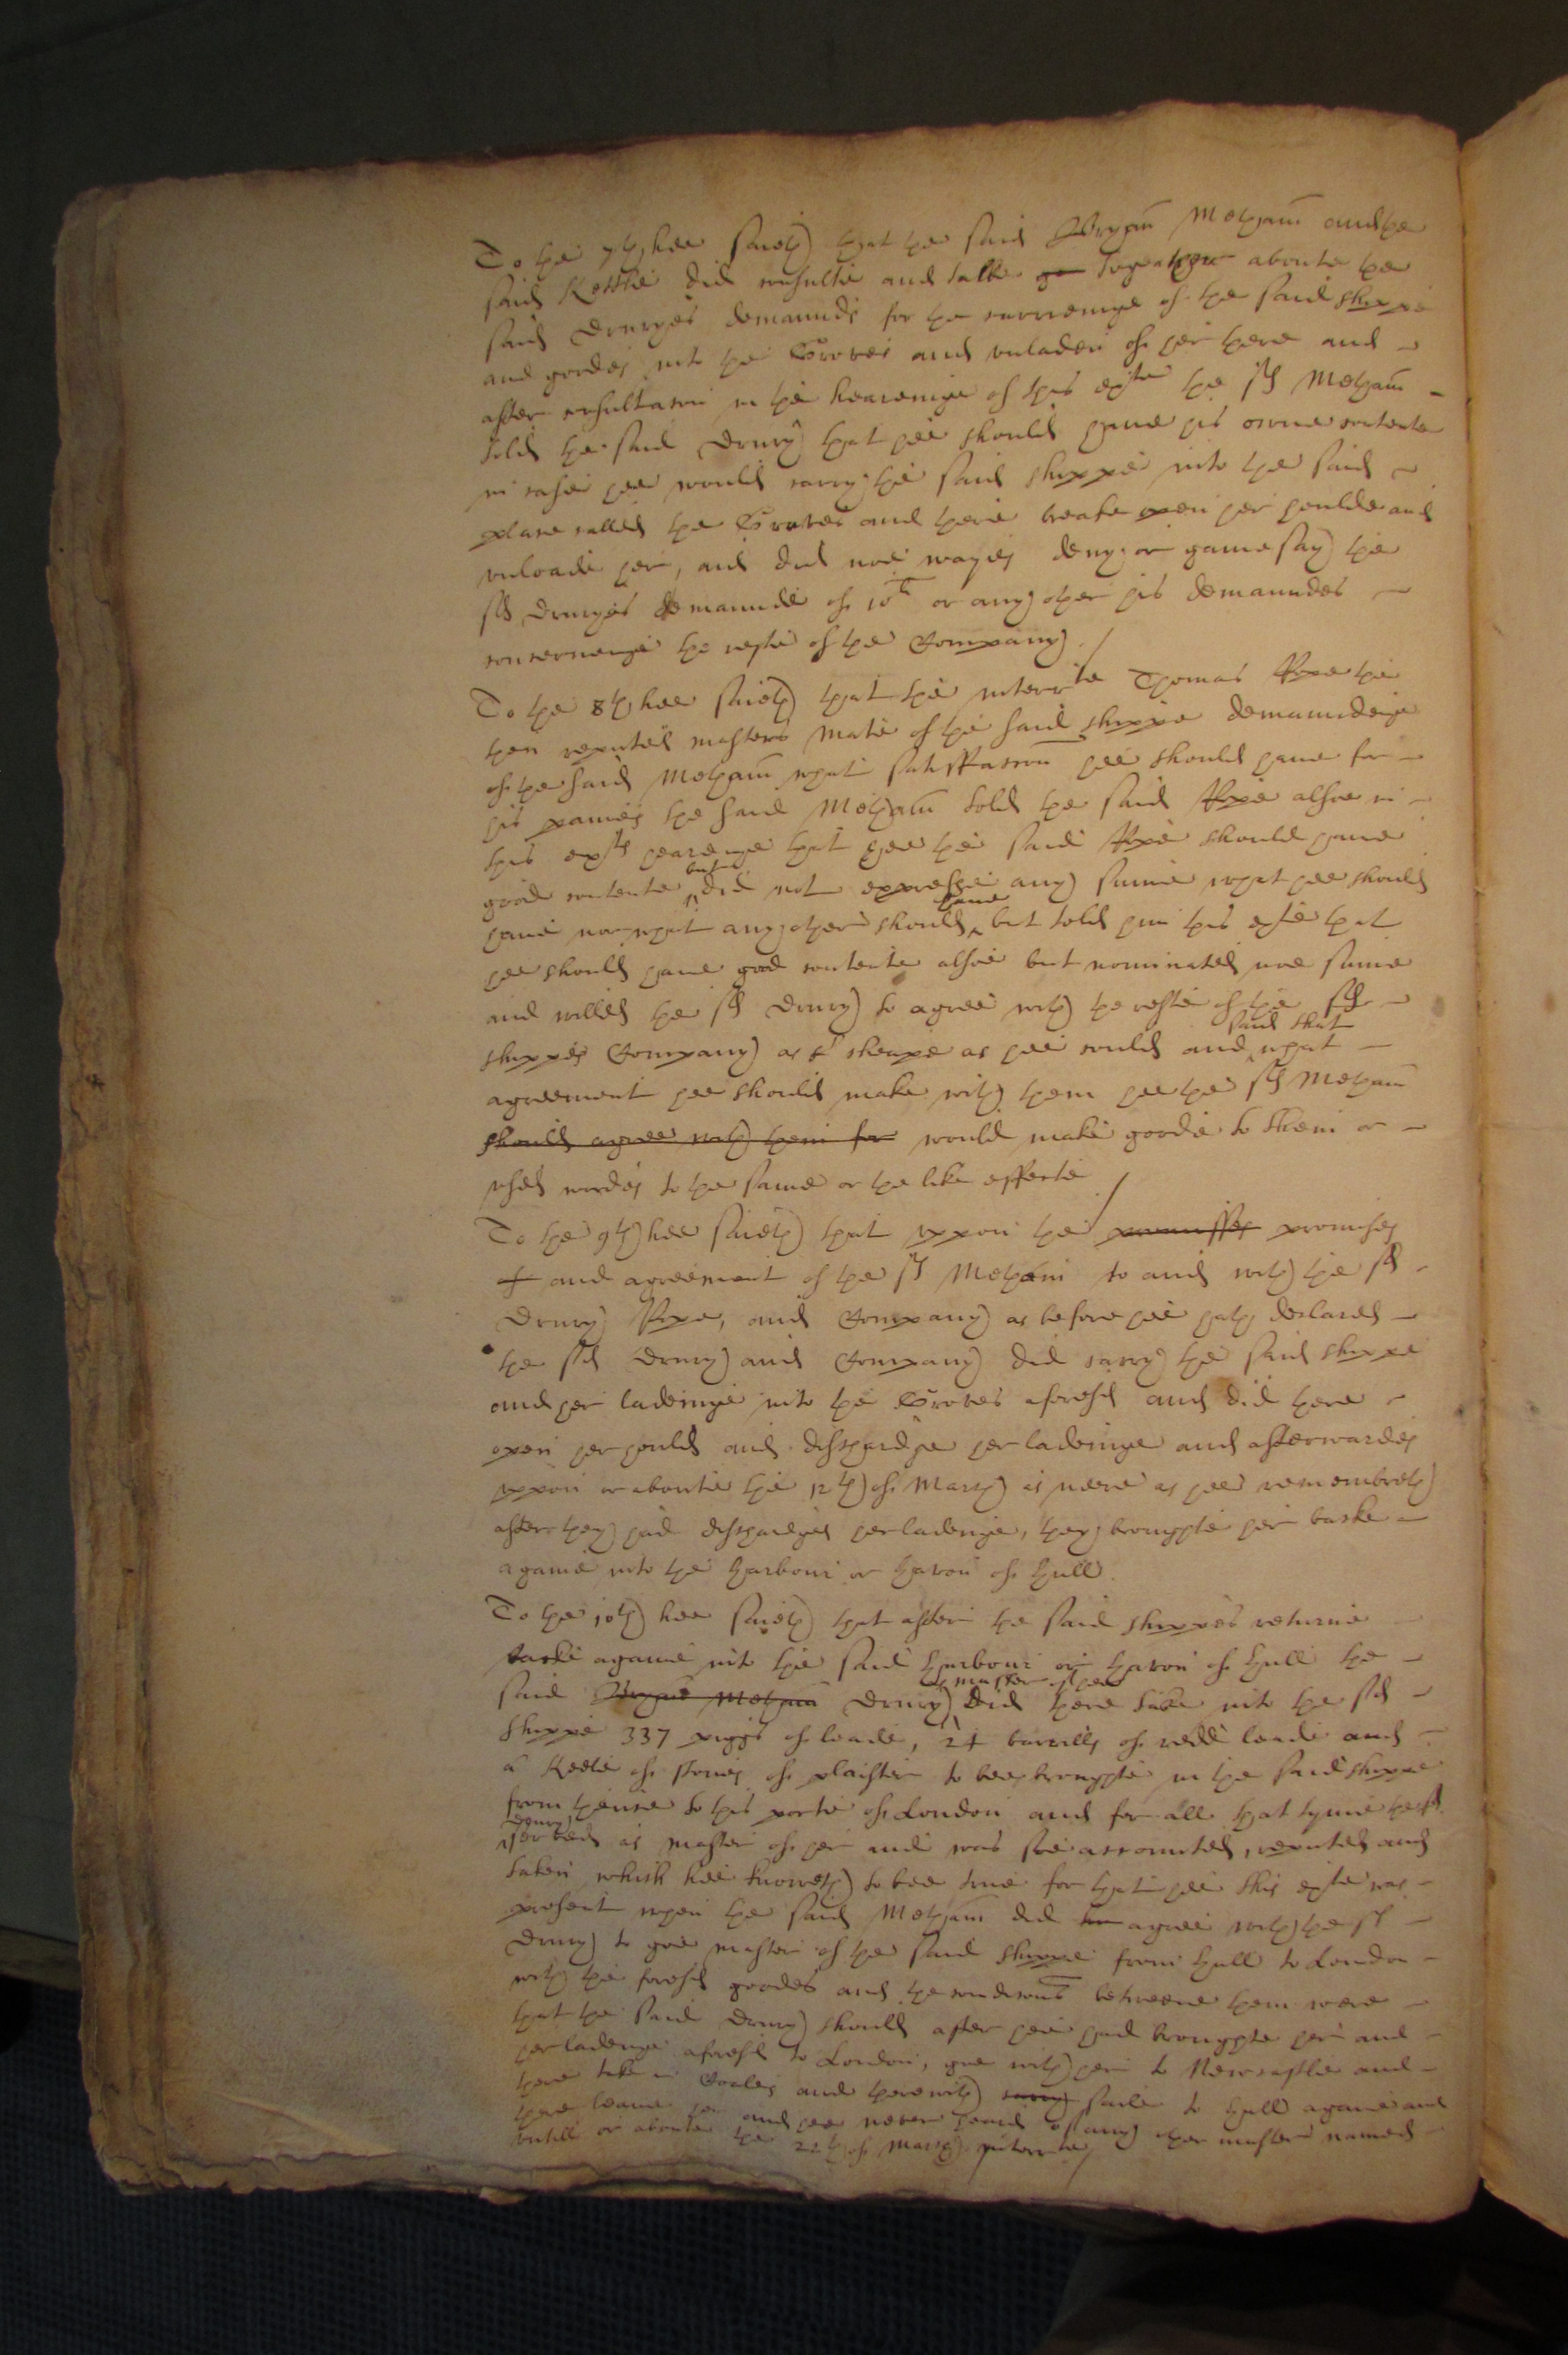 To the 7th hee saieth that the said Bryan Metham and the
said Kettle did consulte and talke together aboute the
said Druryes demaunds for the carrienge of the said shippe
and goodes into the Groves and unladen of her there and
after consultacon in the heareinge of this exte the sd Metham
told the said Drury that hee should have his owne contente
in case hee would carry the said shippe into the said
place called the Groves and there breake open her houlde and
unloade her, and did noe wayes deny or gainesay the
sd Druryes demaunde of 10li or any other his demaundes
concerneinge the reste of the Company /
To the 8th hee saieth that the interrte Thomas Pope the
then reputed masters mate of the said shippe demaundeinge
of the said Metham what satisffaccon hee should have for
his paines the said Metham told the said Pope alsoe in
this exts heareinge that hee the said Pope should have
good contente but did not expresse any summe what hee should
have nor what any other should have but told him this exte that
hee should have good contente alsoe but nominated noe summe
and willed the sd Drury to agree with the reste of the sd
shippes Company as cheape as hee could and said that what
agreement hee should make with them hee the sd Metham
should agree with them for would make goode to them or
used wordes to the same or the like effecte /
To the 9th hee saieth that uppon the promisses promises
and agreement of the sd Metham to and with the sd
Drury Pope, and Company as before hee hath declared
the sd Drury and Company did carry the said shippe
and her ladeinge into the Groves aforesd and did there
open her hould and discharge her ladeinge and afterwardes
uppon or aboute the 12th of March as neere as hee remembreth
after they had discharged her ladeinge, they broughte her backe
againe into the harbour or haven of Hull.
To the 10th hee saieth that after the said shippes returne
backe againe into the said harbour or haven of Hull the
said Bryan Metham Drury the master of her did there take into the sd
shippe 337 piggs of leade, 24 barrells of redd leade and
a Keele of stones of plaister to bee broughte in the said shippe
from thence to this porte of London and for all that tyme the sd
Drury served as master of her and was soe accounted, reputed and
taken which hee knoweth to bee true for that hee this exte was
present when the said Metham did agree with the sd
Drury to goe master of the said shippe from Hull to London
with the foresd goodes and the condicons betweene them were
that the said Drury should after hee had broughte her and
her ladeinge aforesd to London, goe with her to Newcastle and
there take in Coales and therewith carry saile to Hull againe and
there leave her and hee never heard of any other master named
untill or aboute the 22th of March interrte /